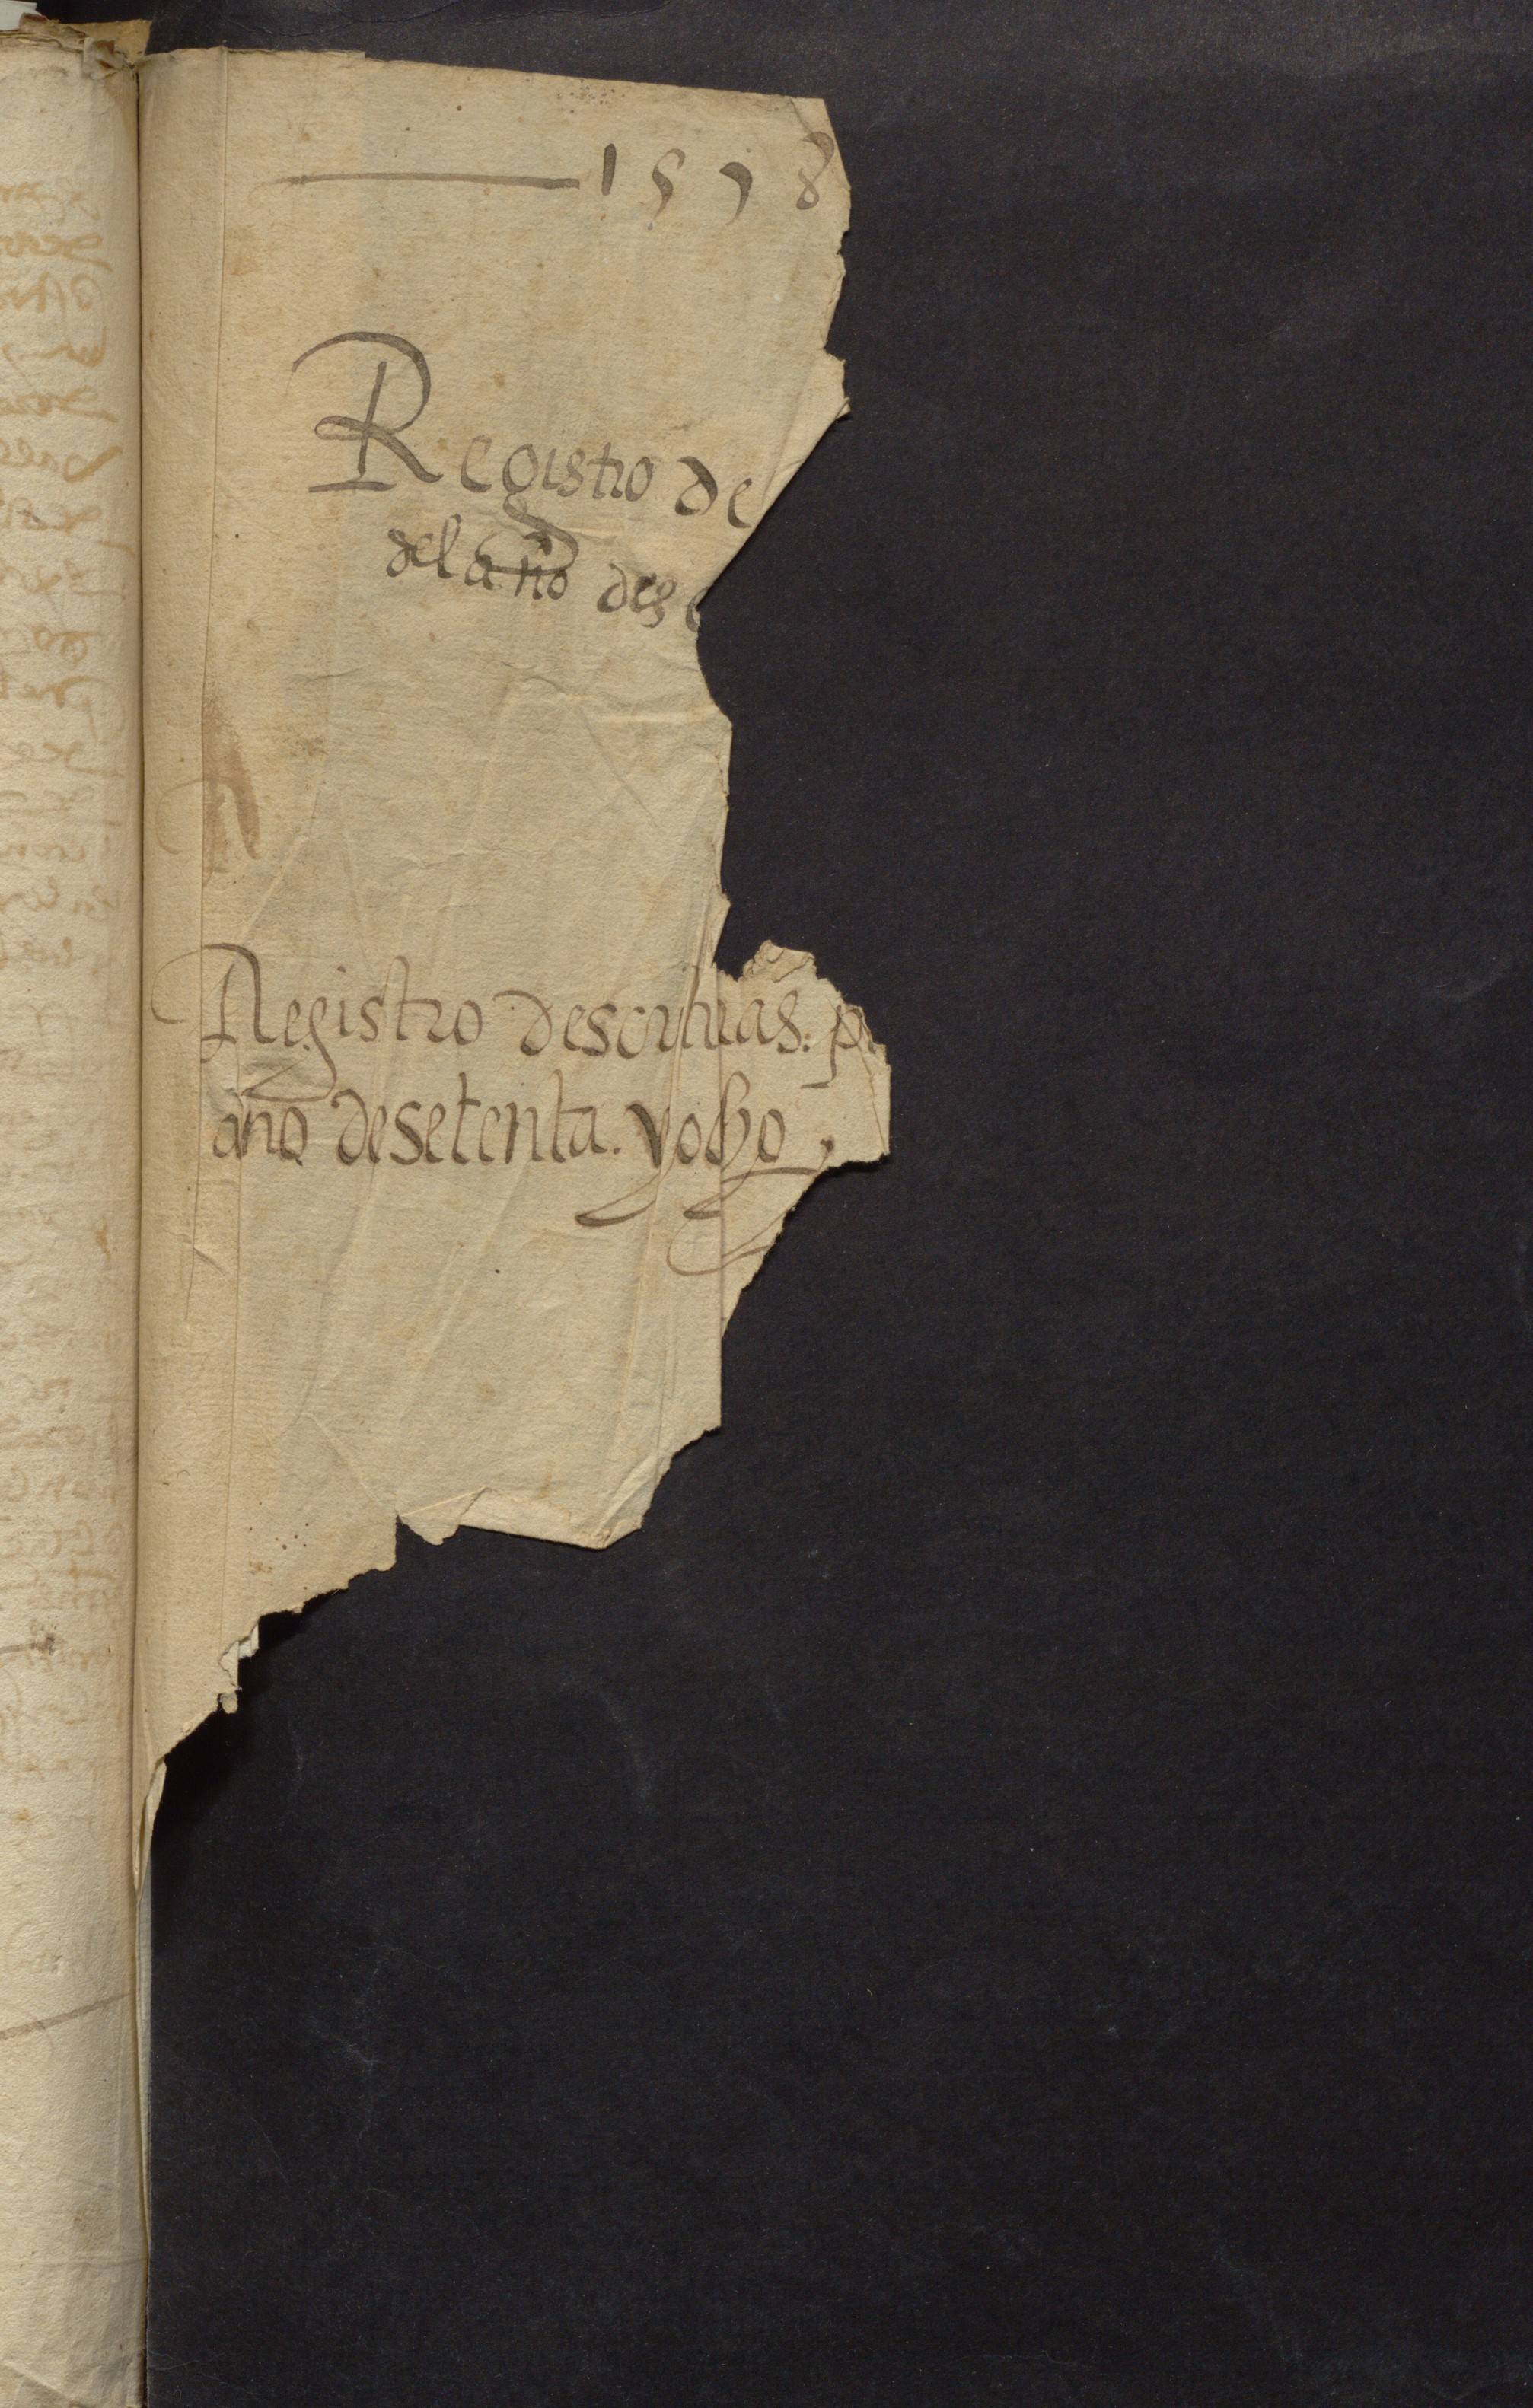 1578
Registro de
del año des
Registro descrituras. p
año desetenta. yocho.